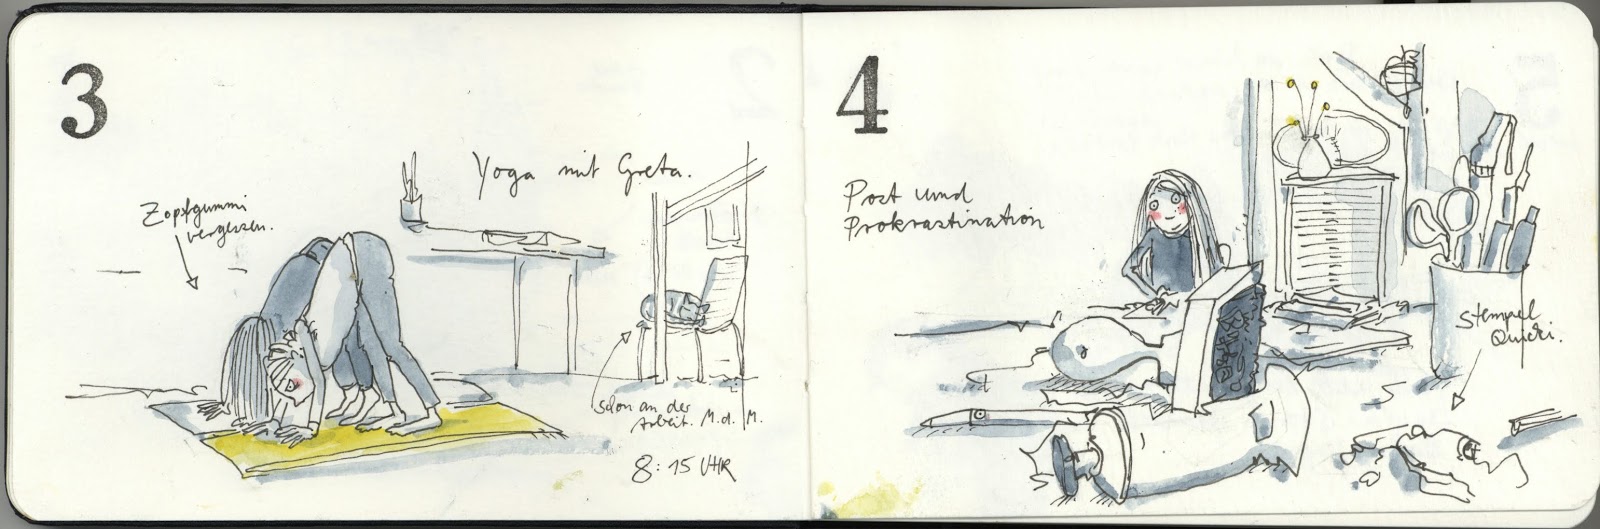 3
Yoga mit Greta.
Zopfgummi
vergessen.
schon an der
Arbeit. M.d.M.
8:15 UHR
4
Post und
Prokrastination
Stempel